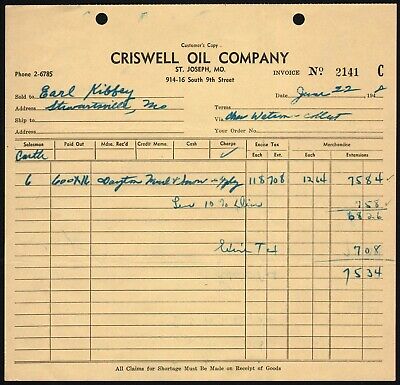 Customer's Copy
CRISWELL OIL COMPANY
ST. JOSEPH, MO.
Phone 2-6785 914-16 South 9th Street INVOICE No 2141 C
Sold to Earl Kibbey Date June 22 1948
Stewartsville, Mo
Ship to Via Chas Watson - collect
Address Your Order No.
Salesman Paid Out Mdse. Rec'd Credit Memo. Cash Charge Excise Tax Merchandise
Each Ext. Each Extensions
Castle ✓
6 600x16 Dayton & Town - 4 ply 118 708 1264 7584
Less 10 % 758
6826
Tax 708
7534
All Claims for Shortage Must Be Made on Receipt of Goods